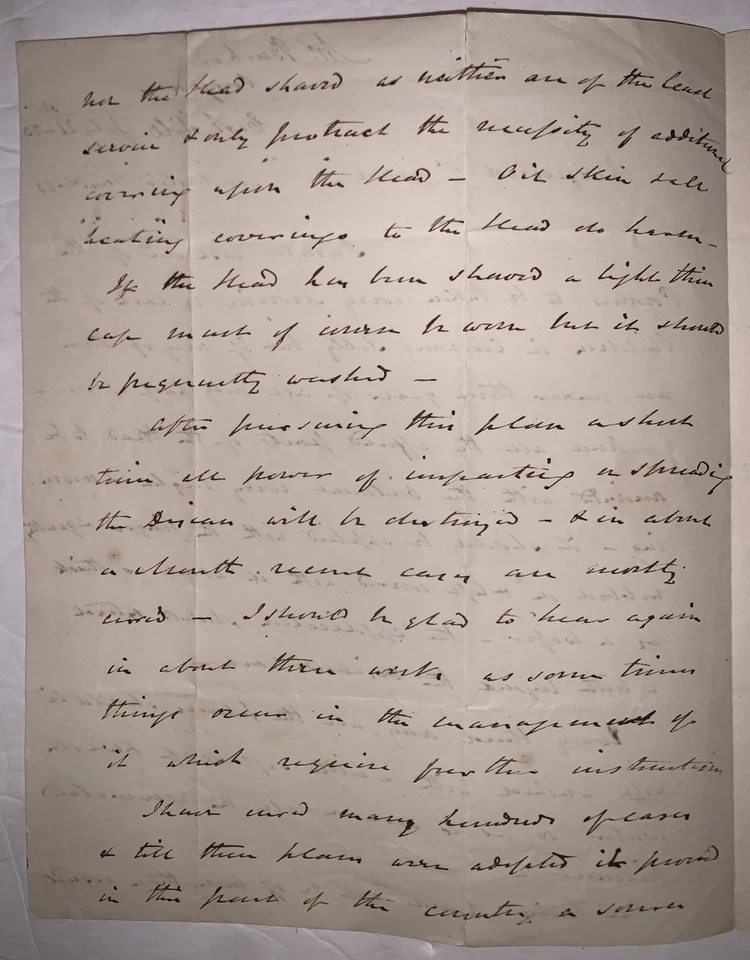 nor the Head shaved as neither are of the least
service & only protract the necessity of additional
covering upon the Head — Oil skin & all
heating coverings to the Head do harm —
If the Head has been shaved a light thin
cap must of course be worn but it should
be frequently washed —
After pursuing this plan a short
time all power of imparting or spreading
the Disease will be destroyed — & in about
a Month recent cases are mostly
cured — I should be glad to hear again
in about three weeks as some times
things occur in the management of
it which require further instruction
I have cured many hundreds of cases
& till these plans were adopted it proved
in this part of the country a source